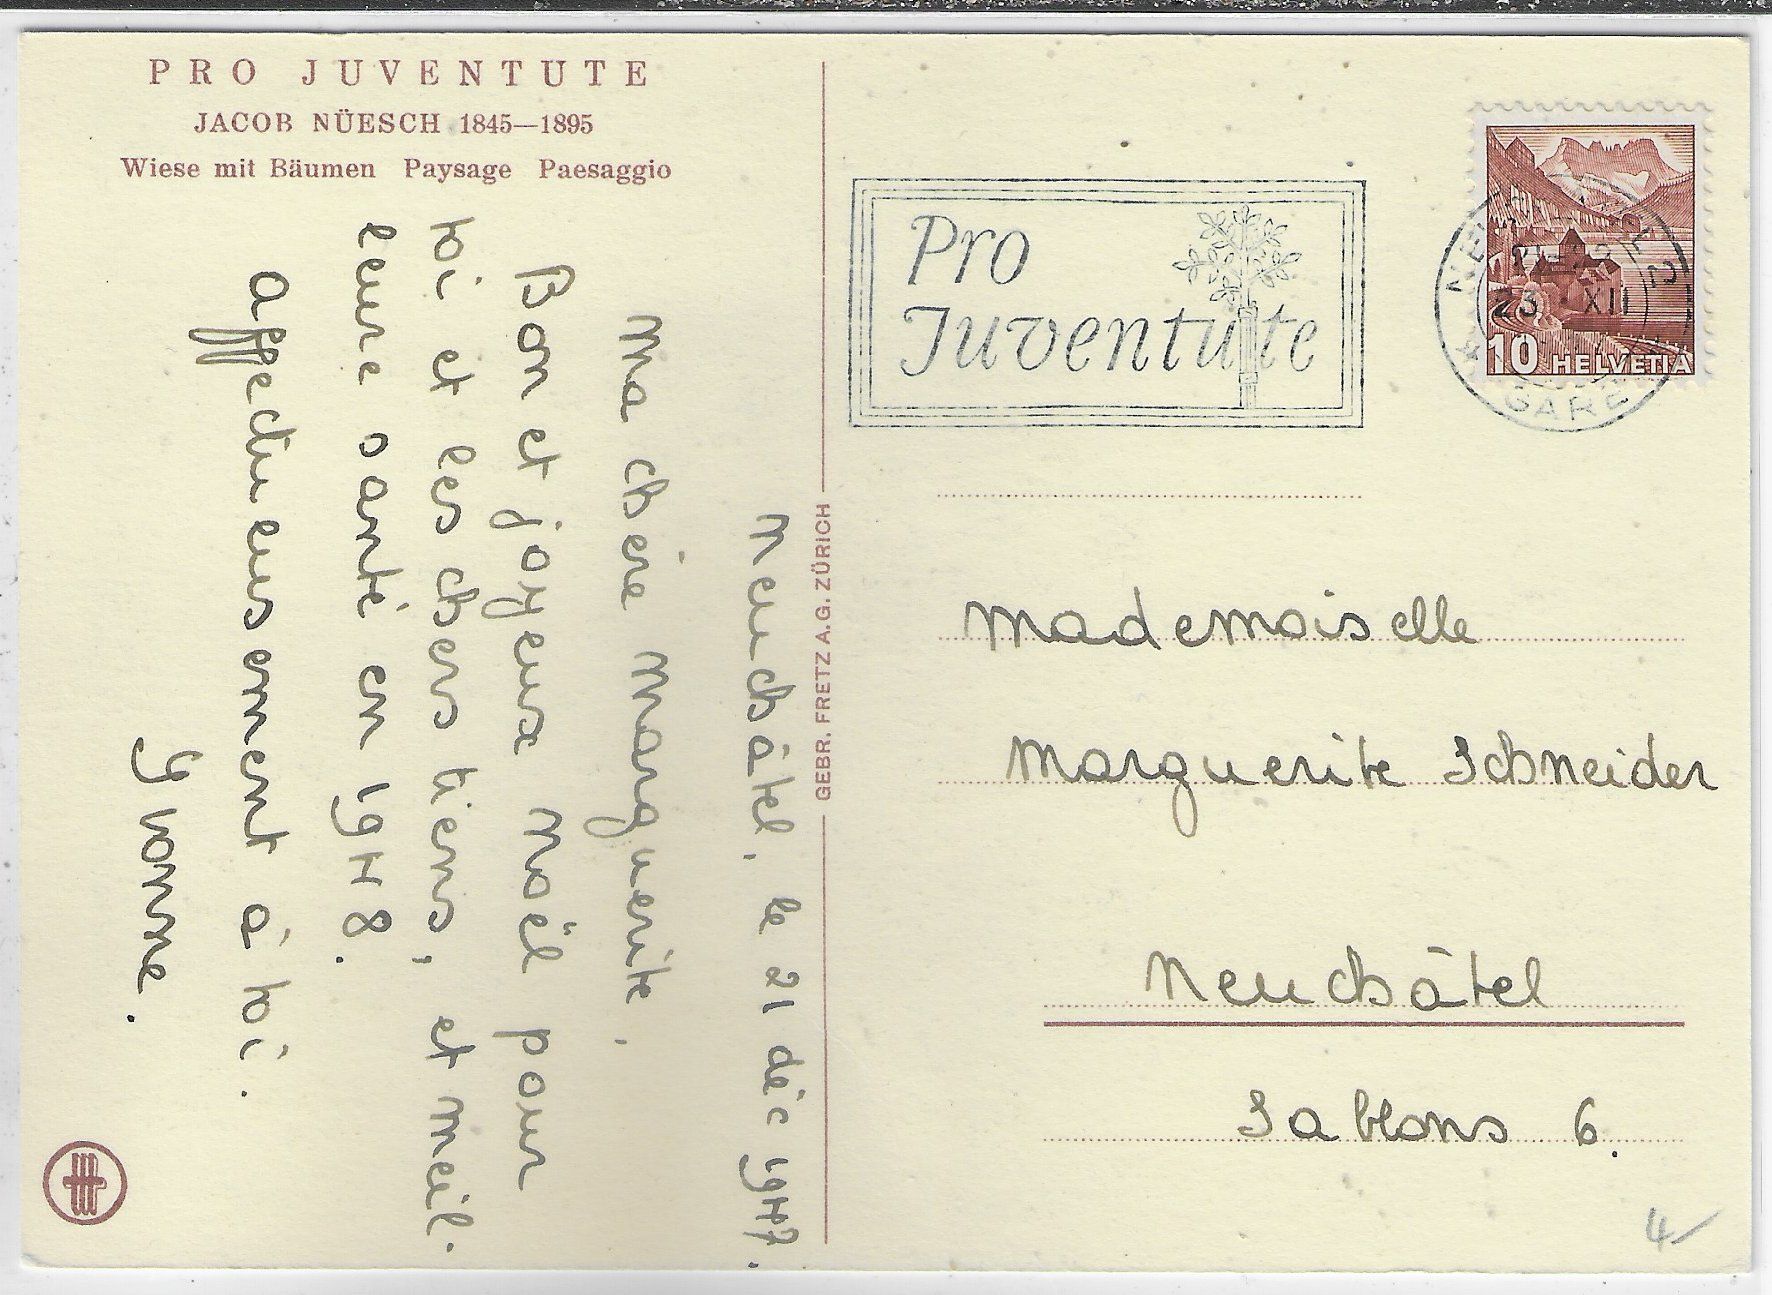 PRO JUVENTUTE
JACOB NÜESCH 1845—1895
Wiese mit Bäumen Paysage Paesaggio
Neuchâtel, le 21 déc 1947.
Ma chère Marguerite,
Bon et joyeux Noël pour
toi et les chers tiens, et meil-
leure santé en 1948.
Affectueusement à toi.
Yvonne.
GEBR. FRETZ A.G. ZÜRICH
Pro
Juventute
23 XII
GARE
10 HELVETIA
Mademoiselle
Marguerite Schneider
Neuchâtel
Sablons 6.
4